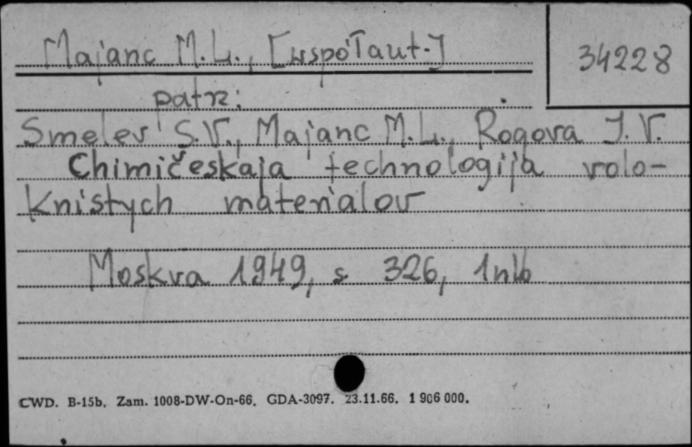 Majanc M.L., [współaut.]
34228
patrz:
Smelev S.V., Majanc M.L., Rogova J.V.
Chimičeskaja technologija volo-
knistych materialov
Moskva 1949, s 326, 1nlb
CWD. B-15b. Zam. 1008-DW-On-66. GDA-3097. 23.11.66. 1 906 000.